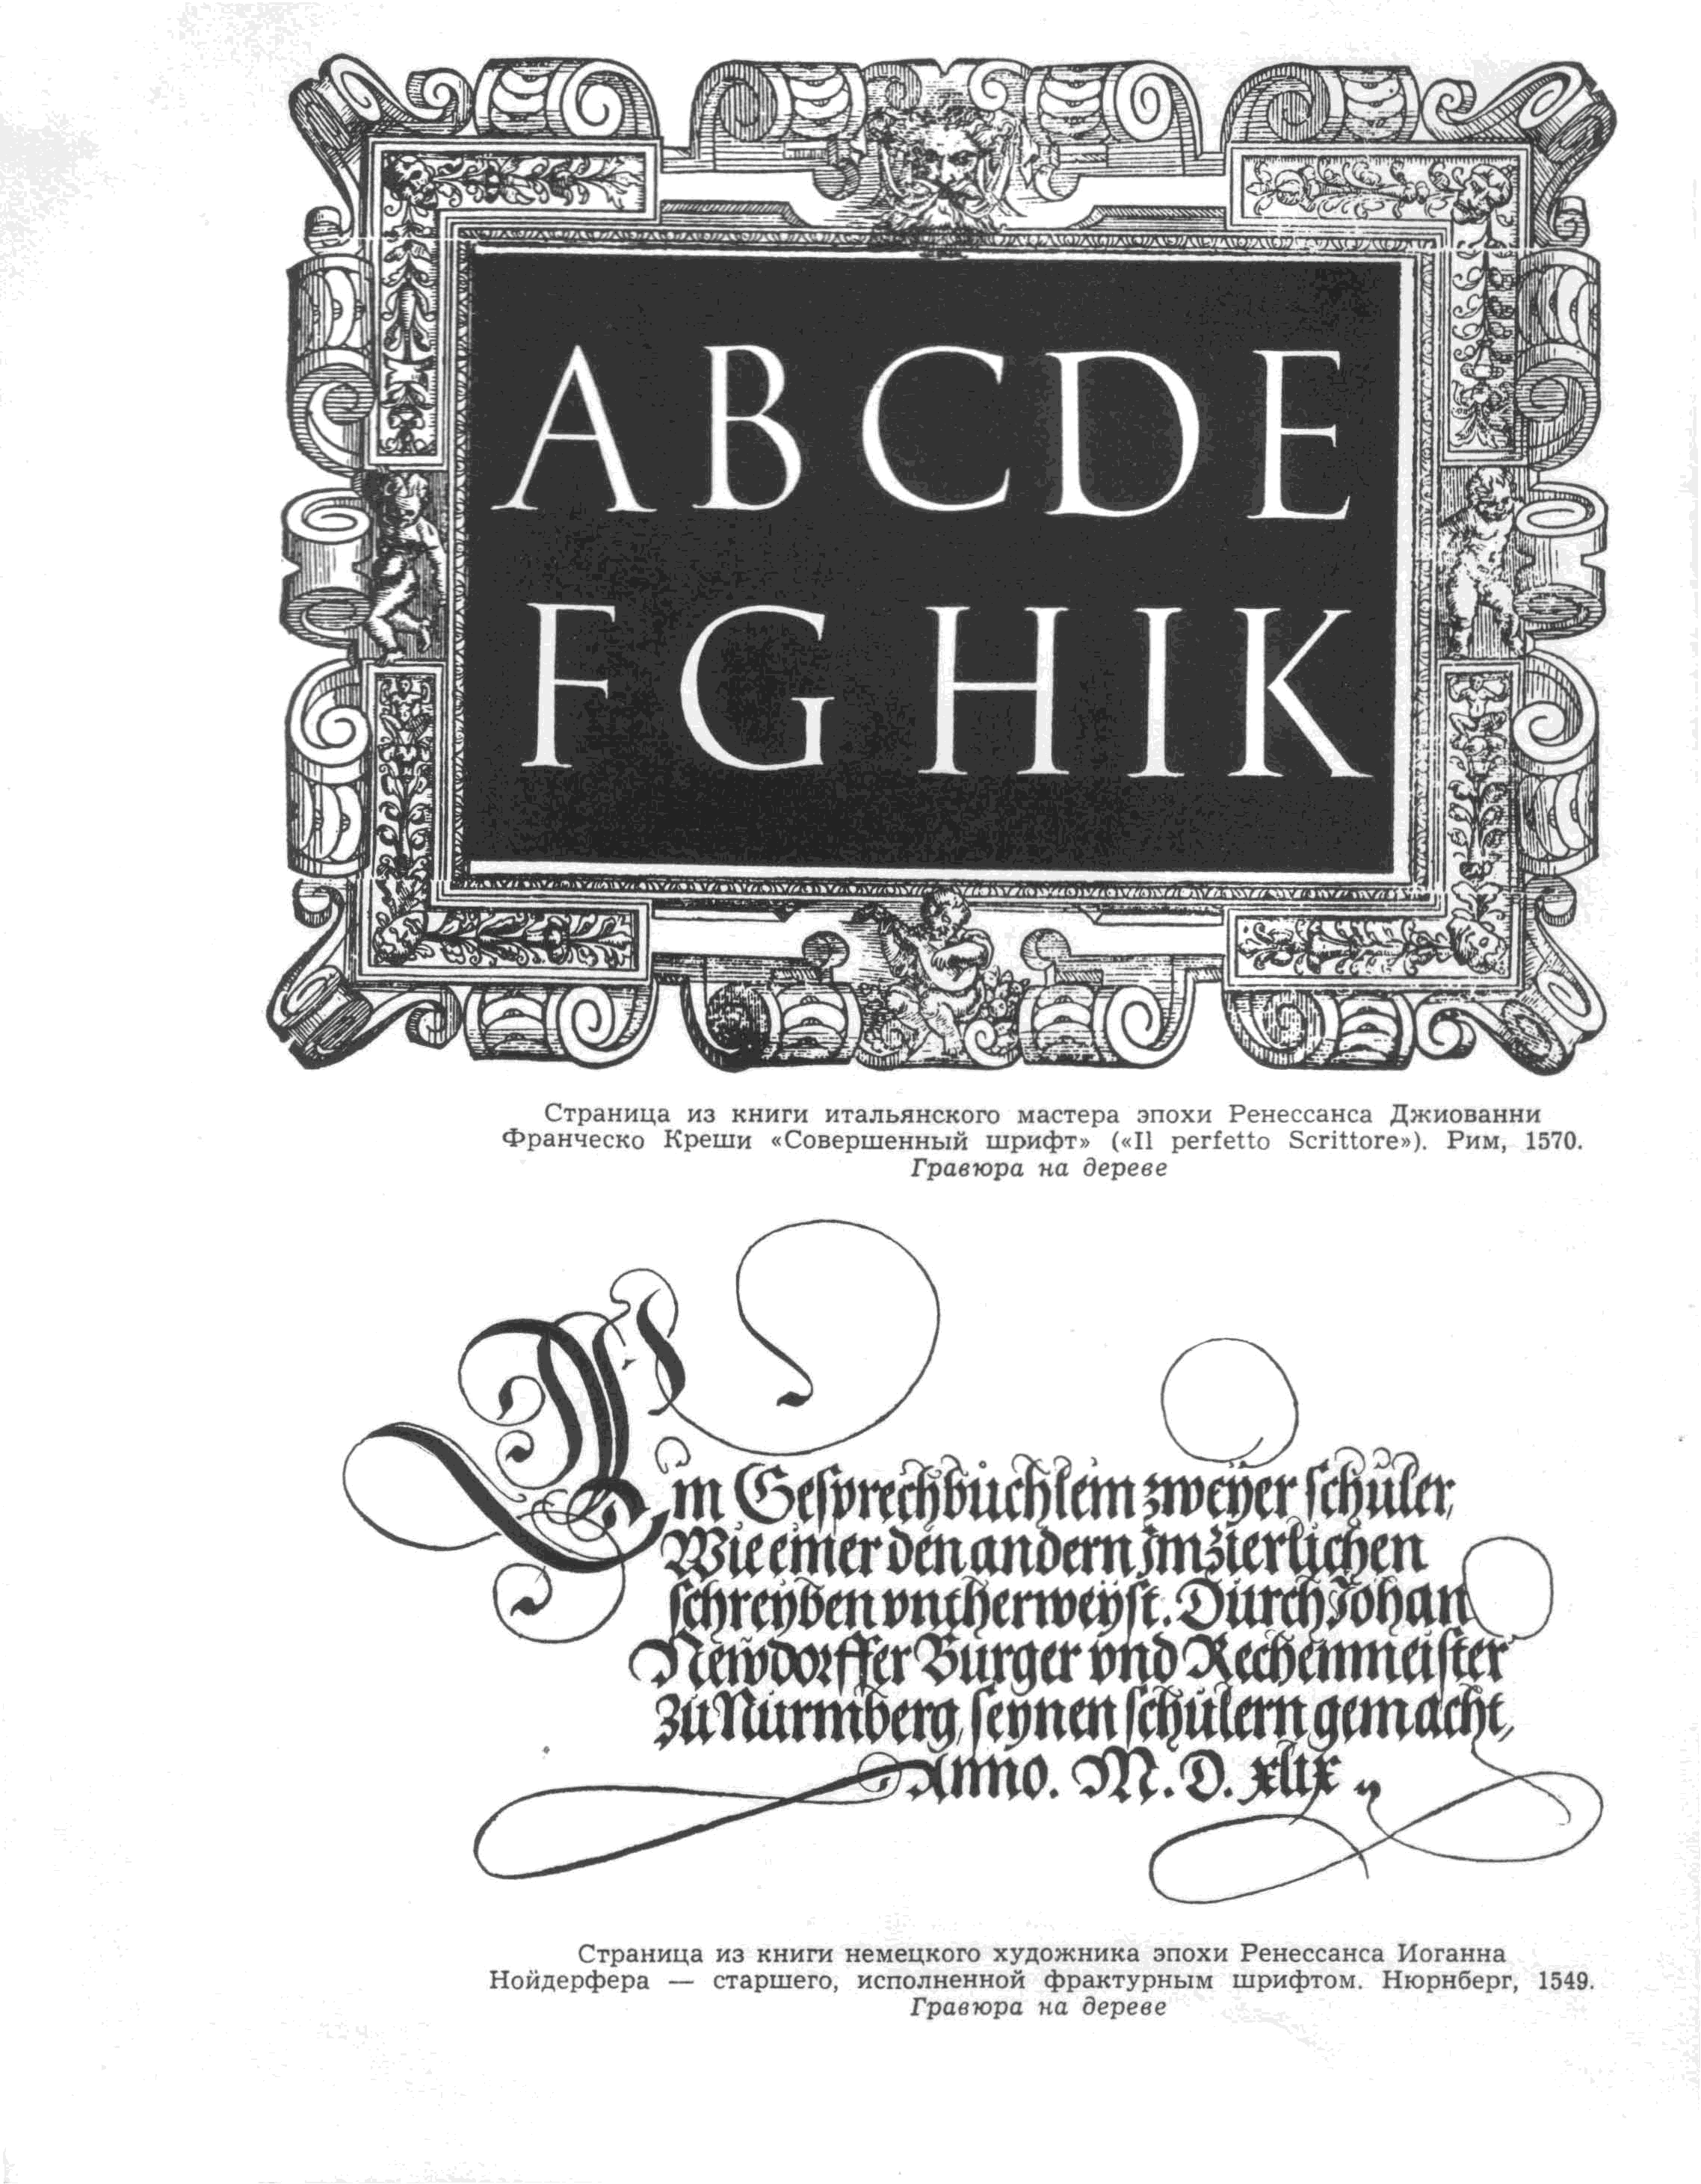 A B C D E
F G H I K
Страница из книги итальянского мастера эпохи Ренессанса Джиованни
Франческо Креши «Совершенный шрифт» («Il perfetto Scrittore»). Рим, 1570.
Гравюра на дереве
Ein Gesprechbüchlein zweyer schüler,
Wie einer den andern im zierlichen
schreyben vntherweyst. Durch Johan
Newdorffer Burger vnd Rechenmeister
zu Nurmberg, seynen schülern gemacht,
Anno. M. D. xlix
Страница из книги немецкого художника эпохи Ренессанса Иоганна
Нойдерфера — старшего, исполненной фрактурным шрифтом. Нюрнберг, 1549.
Гравюра на дереве